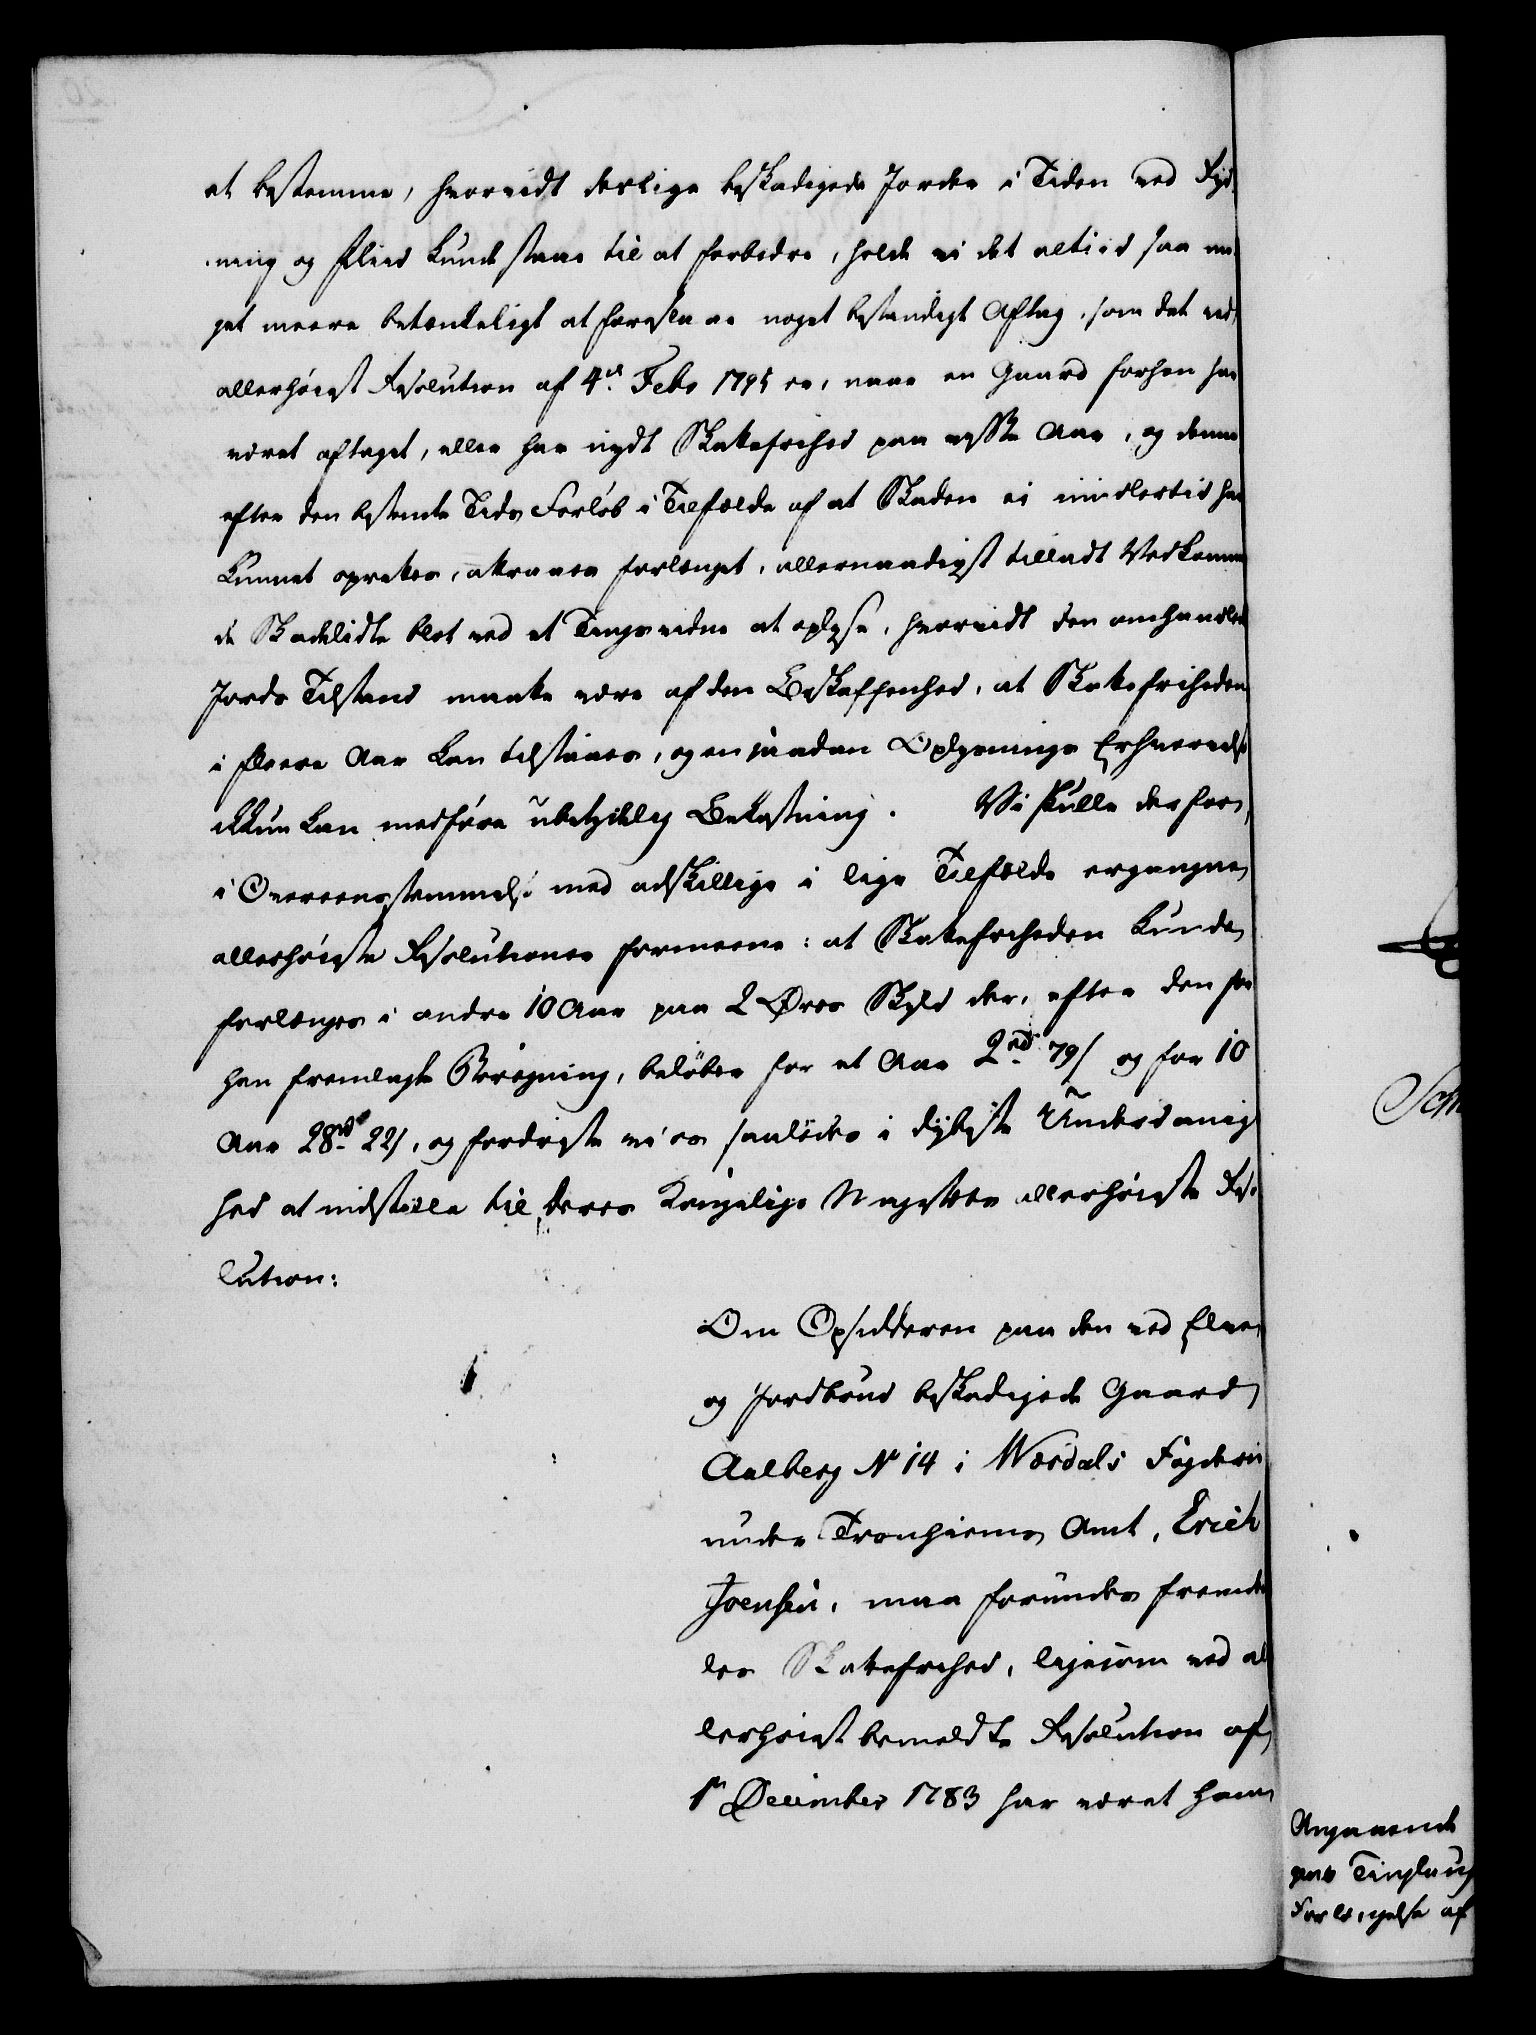 at bestemme, hvorvidt deslige beskadigede Jorder i Tiden ved Ryd-
ning og Fliid kunde staae til at forbedre, holde vi det altiid saa me-
get meere betænkeligt at foreslaae noget bestandigt Aftag, som det ved
allerhøiest Resolution af 4de Febr 1795 er, naar en Gaard forhen har
været aftaget, eller har nydt Skattefrihed paa visse Aar, og denne
efter den bestemte Tids Forløb i Tilfælde af at Skaden ei imidlertid har
kunnet oprettes, attraaes forlænget, allernaadigst tilladt Vedkommen-
de Skadelidte blot ved et Tingsvidne at oplyse, hvorvidt den omhandlede
Jords Tilstand maatte være af den Beskaffenhed, at Skattefriheden
i fleere Aar kan tilstaaes, og en saadan Oplysnings Erhvervelse
ikkun kan medføre ubetydelig Bekostning. Vi skulle derfor,
i Overeensstemmelse med adskillige i lige Tilfælde ergangne
allerhøieste Resolutioner formeene: at Skattefriheden kunde
forlænges i andre 10 Aar paa 2 Øres Skyld der, efter den for-
hen fremlagte Beregning, beløber for et Aar 2 rd 79 s og for 10
Aar 28 rd 22 s, og fordriste vi os saaledes i dybeste Underdanig-
hed at indstille til Deres Kongelige Majestets allerhøieste Reso-
lution:
Om Opsidderen paa den ved Elve-
og Jordbrud beskadigede Gaard
Aalberg No 14 i Værdals Fogderie
under Tronhiems Amt, Erich
Joensen, maa forundes fremde-
les Skattefrihed, ligesom ved al-
lerhøiest bemeldte Resolution af
1te December 1783 har været ham
Angaaende
paa Tinglaug
Forlængelse af